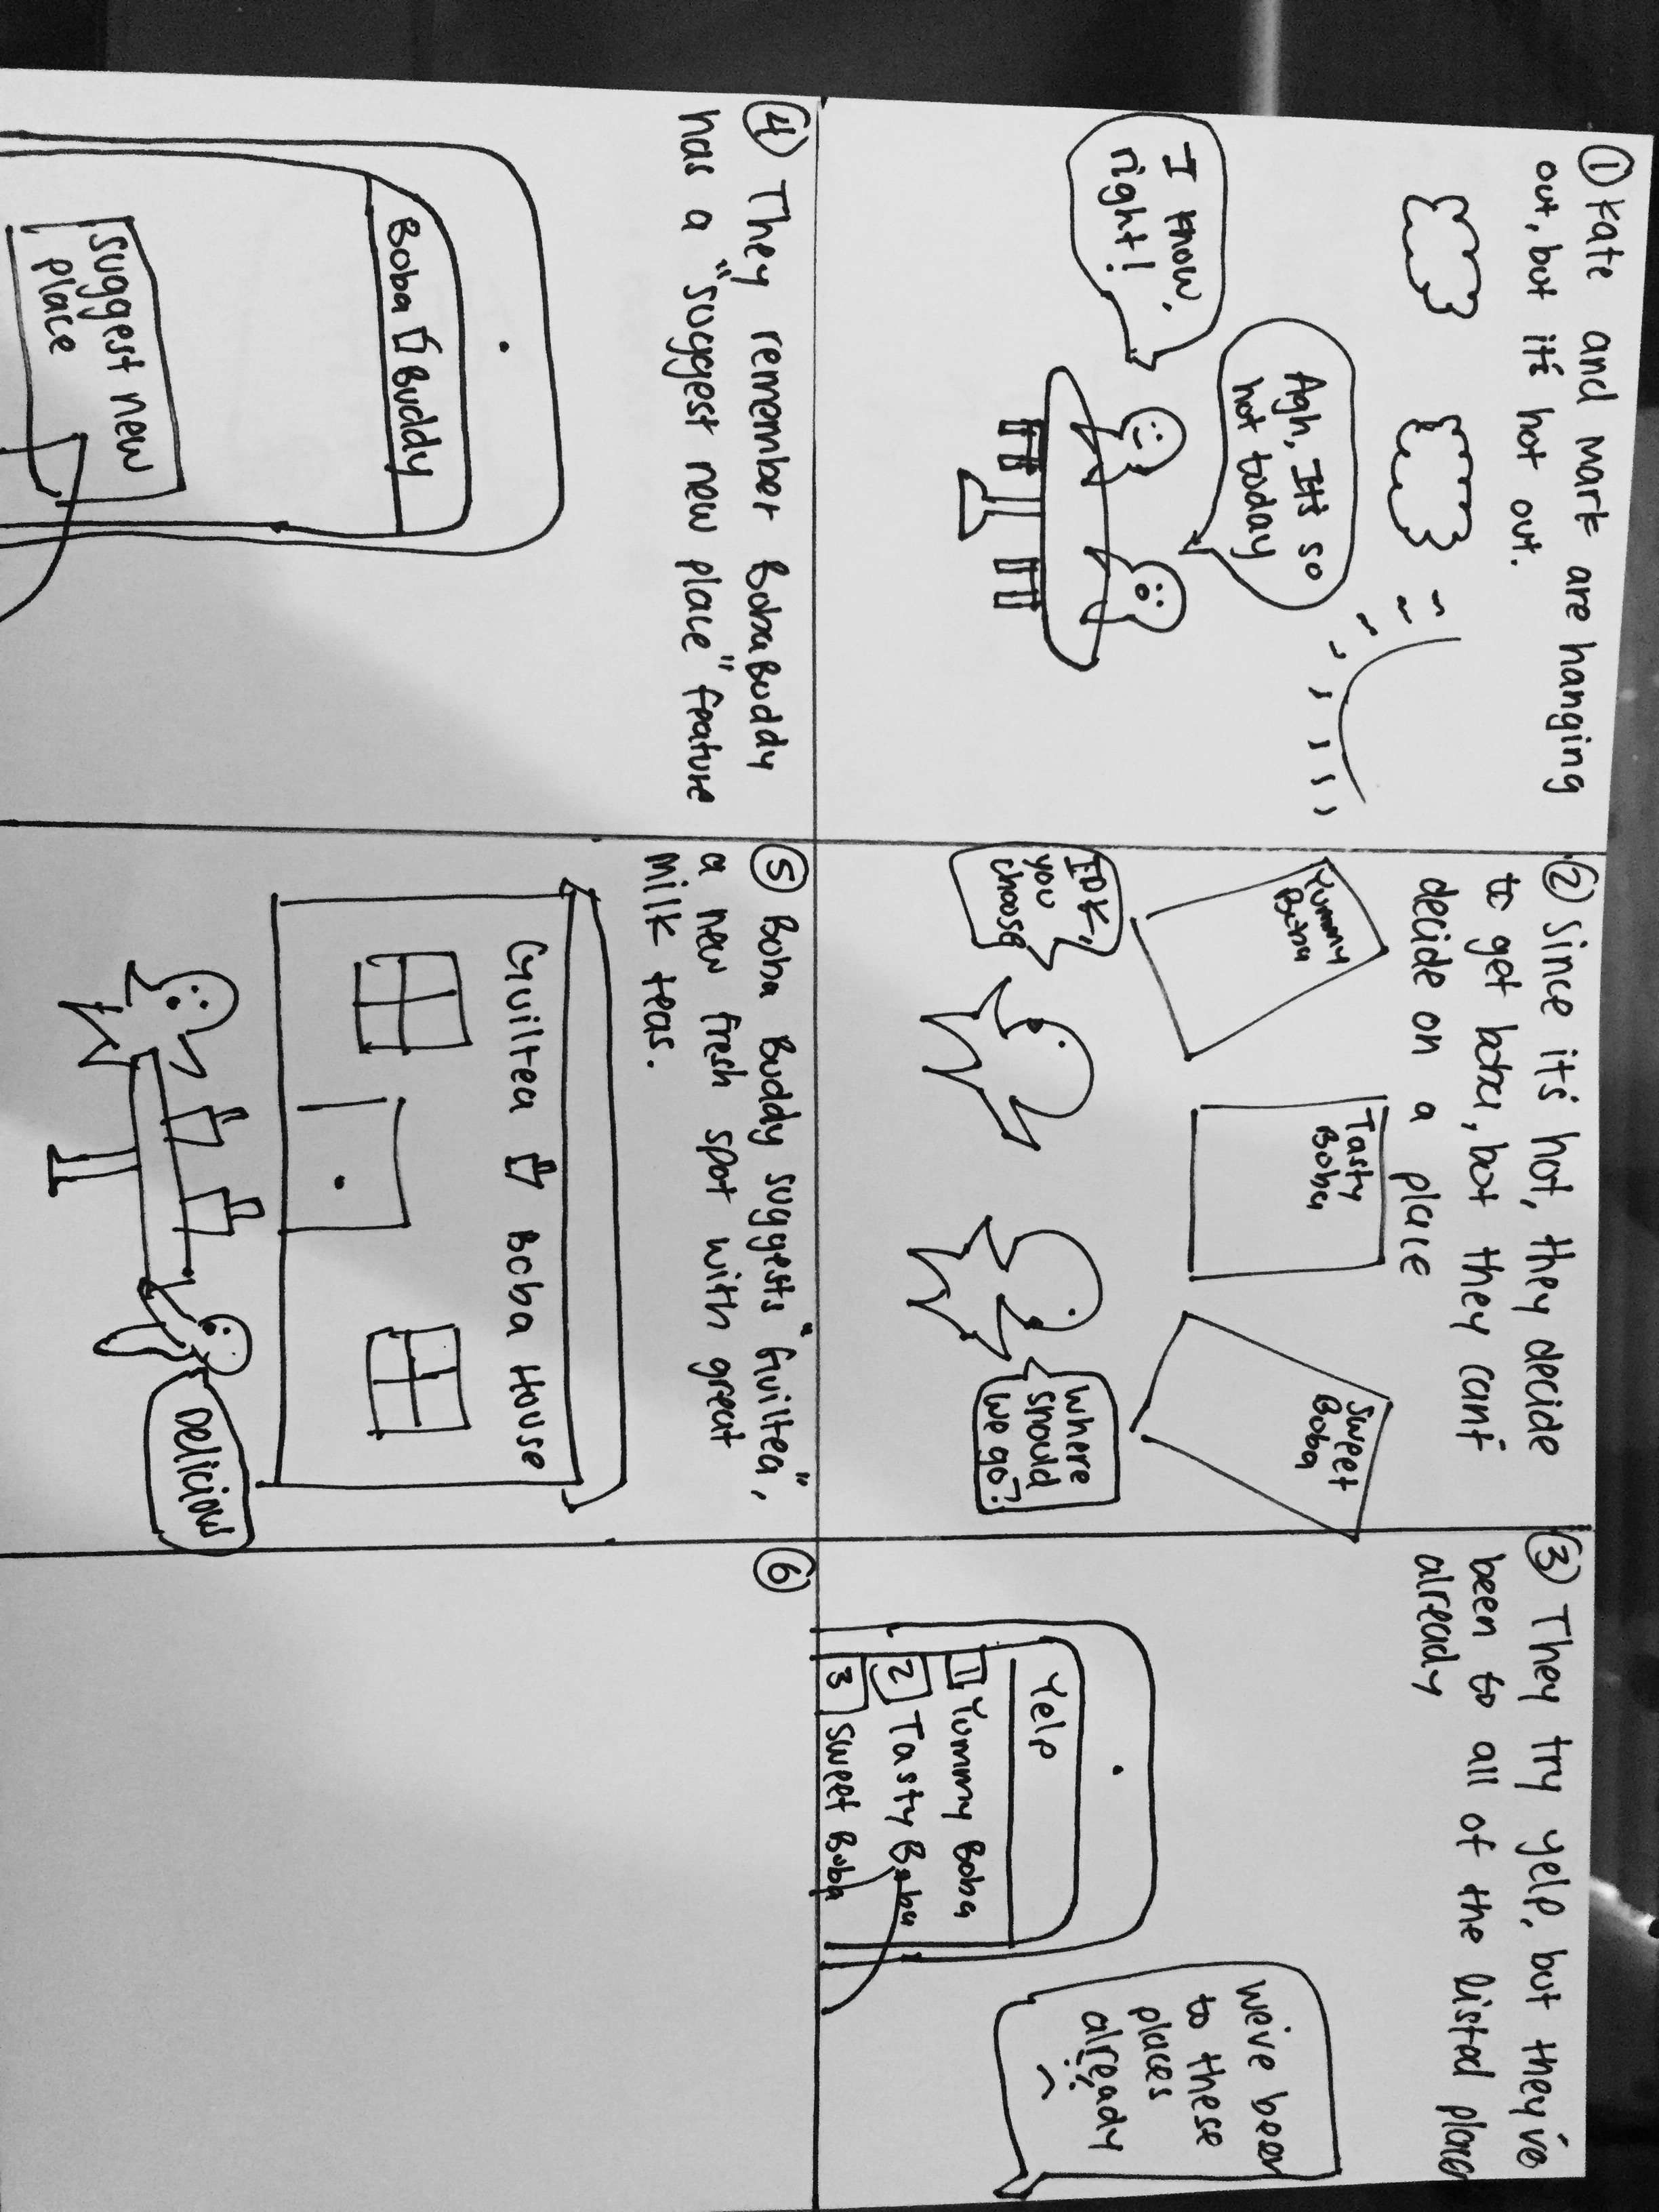 ① Kate and Mark are hanging
out, but it's hot out.
Agh, It's so
hot today
I know,
right!
② Since it's hot, they decide
to get boba, but they can't
decide on a place
Yummy
Boba
Tasty
Boba
Sweet
Boba
IDK,
you
choose
where
should
we go?
③ They try yelp, but they've
been to all of the listed places
already
Yelp
1 Yummy Boba
2 Tasty Boba
3 Sweet Boba
we've been
to these
places
already
④ They remember BobaBuddy
has a "suggest new place" feature
Boba Buddy
suggest new
place
⑤ Boba Buddy suggests "Guiltea",
a new fresh spot with great
milk teas.
Guiltea Boba House
Delicious
⑥